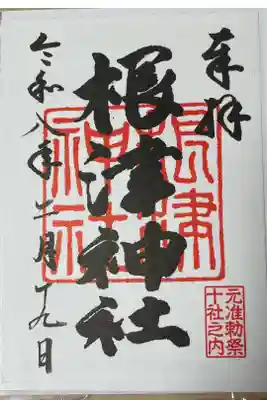 奉拝
根津神社
令和八年二月十九日
根津神社
元准勅祭
十社之内